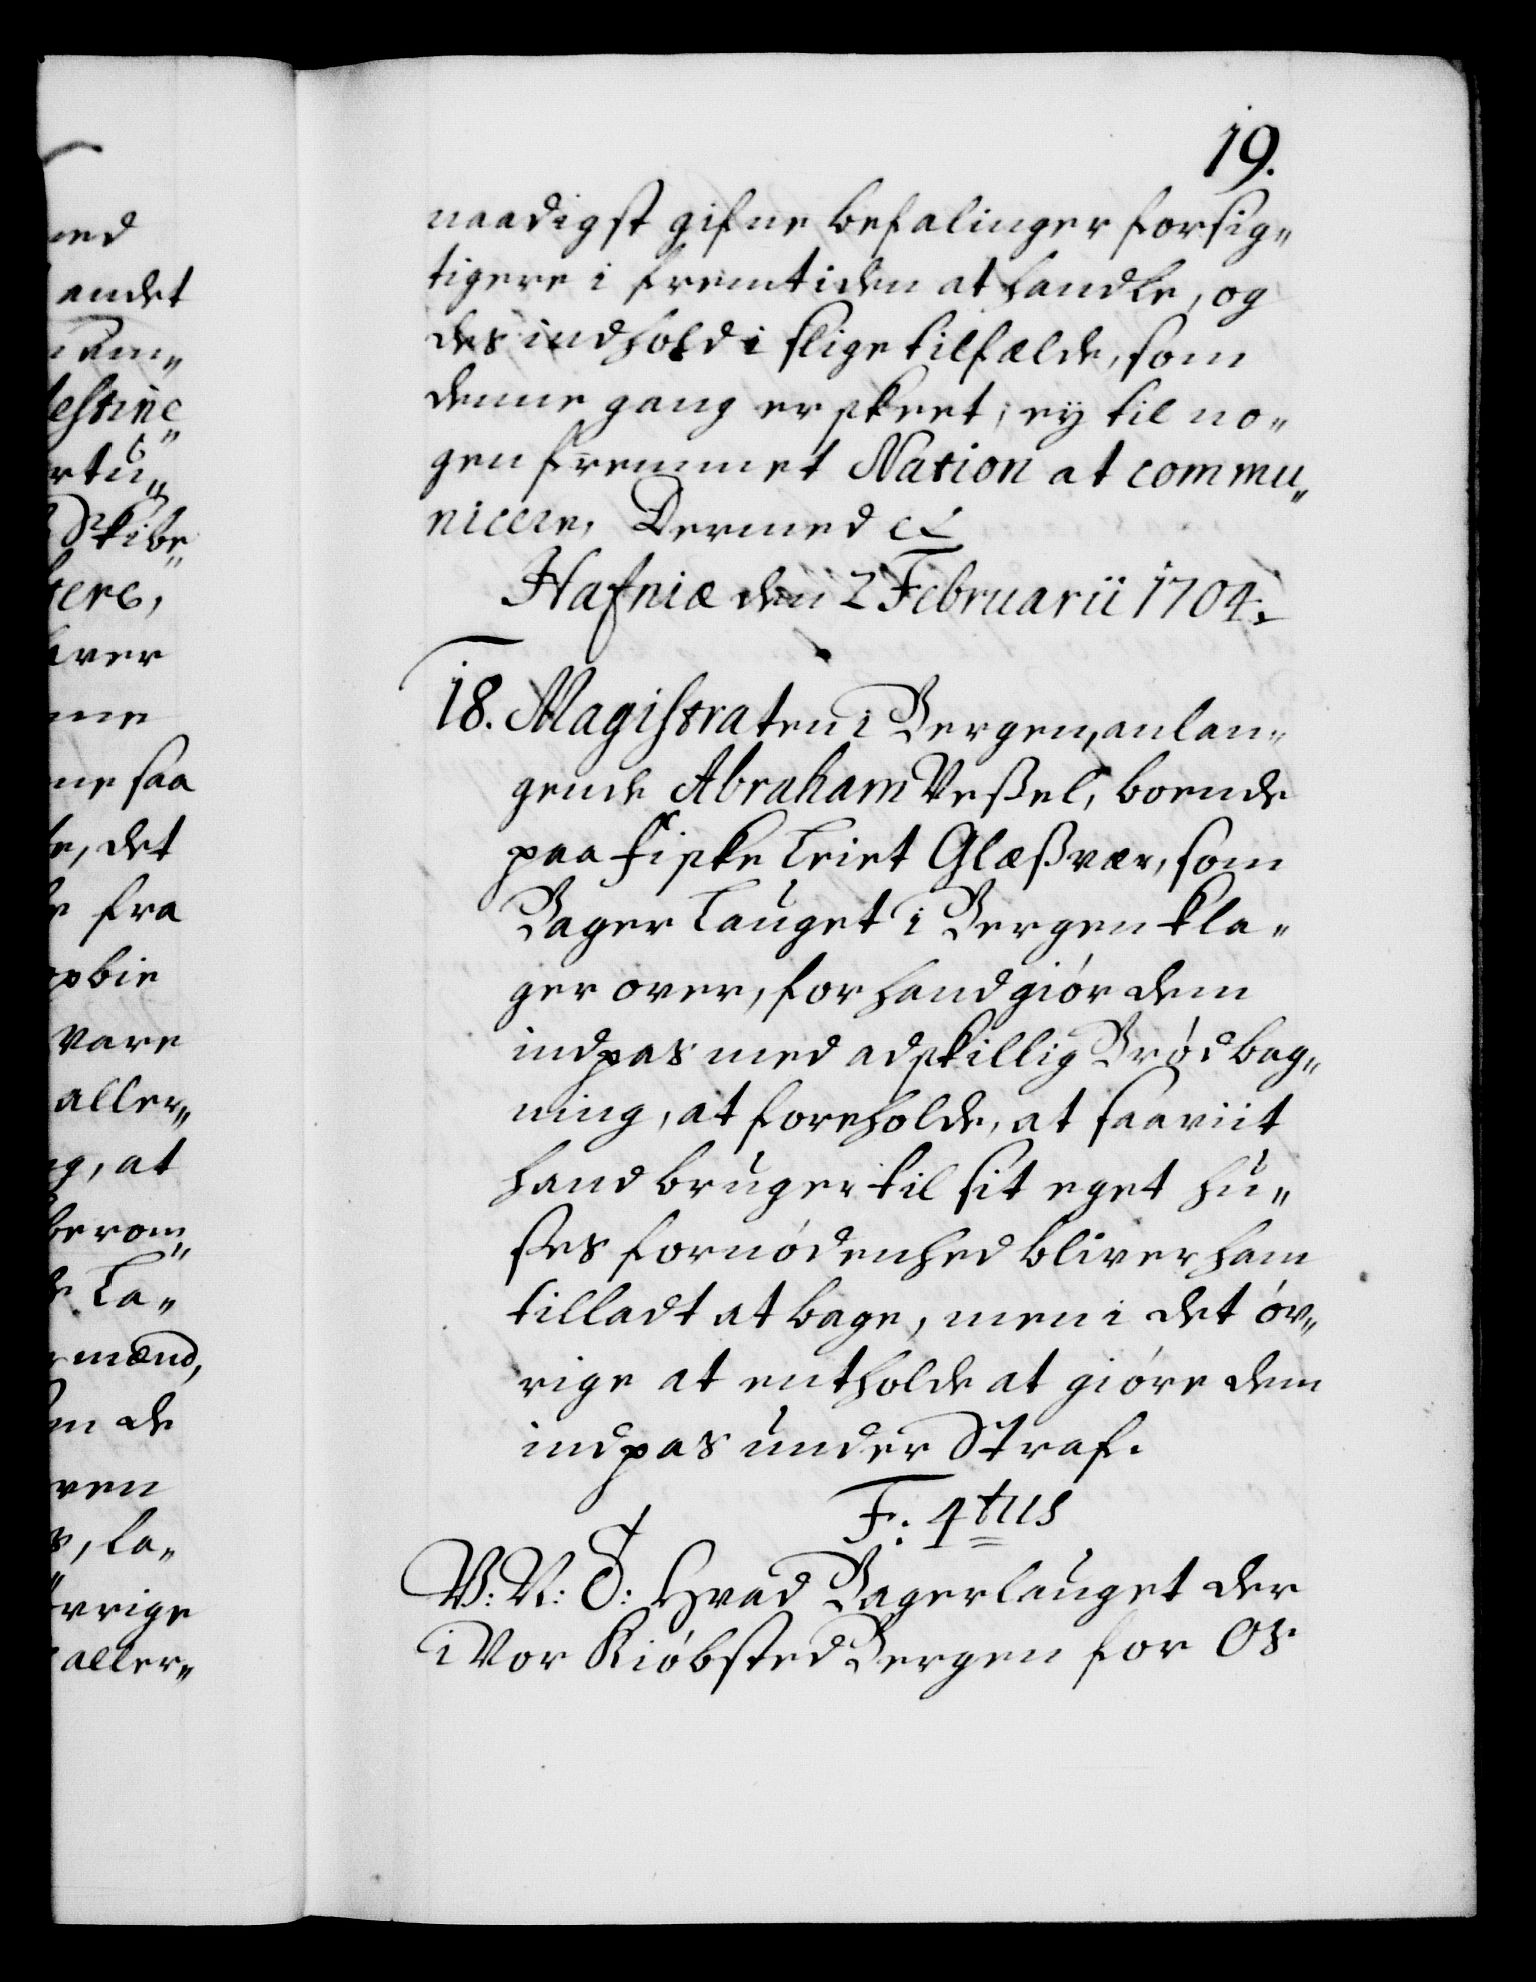 19.
naadigst gifne befalinger forsig„
tigere i fremtiden at handle, og
des indhold i slige tilfælde, som
denne gang er skeet, ey til no„
gen fremmet Nation at commu„
nicere, Dermed etc
Hafniæ den 2 Februarii 1704.
18. Magistraten i Bergen, anlan„
gende Abraham Weßel, boende
paa Fiske Leiet Glæßvær, som
Bager Lauget i Bergen kla„
ger over, for hand giör dem
indpas med adskillig Bröd bag„
ning, at foreholde, at saaviit
hand bruger til sit eget hu„
ses fornödenhed bliver ham
tilladt at bage, men i det öv„
rige at entholde at giöre dem
indpas under Straf.
F: 4tus
V: N: G: Hvad Bagerlauget der
i Vor Kiöbsted Bergen for Os
andet
Skibe
saa
det
fra
vare
aller„
at
La„
mænd,
de
la„
aller„